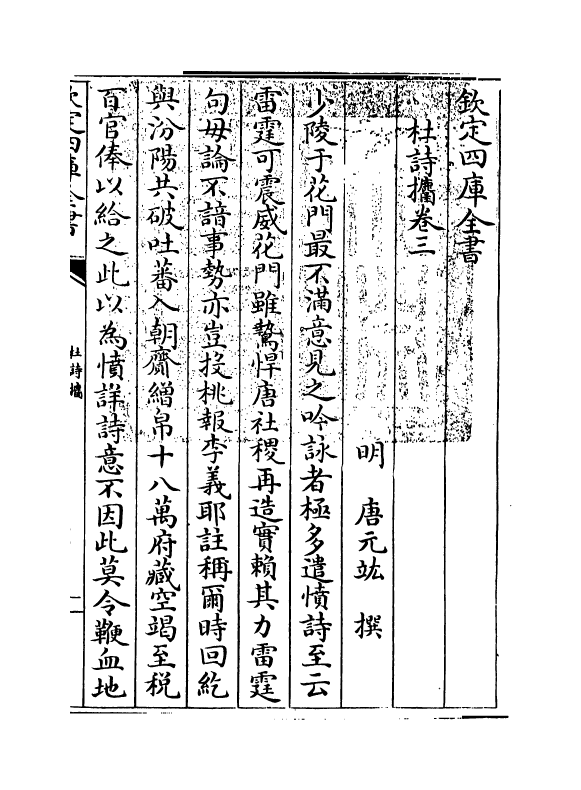 欽定四庫全書
杜詩攟卷三
明　唐元竑　撰
少陵于花門最不滿意見之吟詠者極多遣憤詩至云
雷霆可震威花門雖鷙悍唐社稷再造實賴其力雷霆
句毋論不諳事勢亦豈投桃報李義耶註稱爾時回紇
與汾陽共破吐蕃入朝齎繒帛十八萬府藏空竭至税
百官俸以給之此以為憤詳詩意不因此莫令鞭血地
欽定四庫全書
杜詩攟